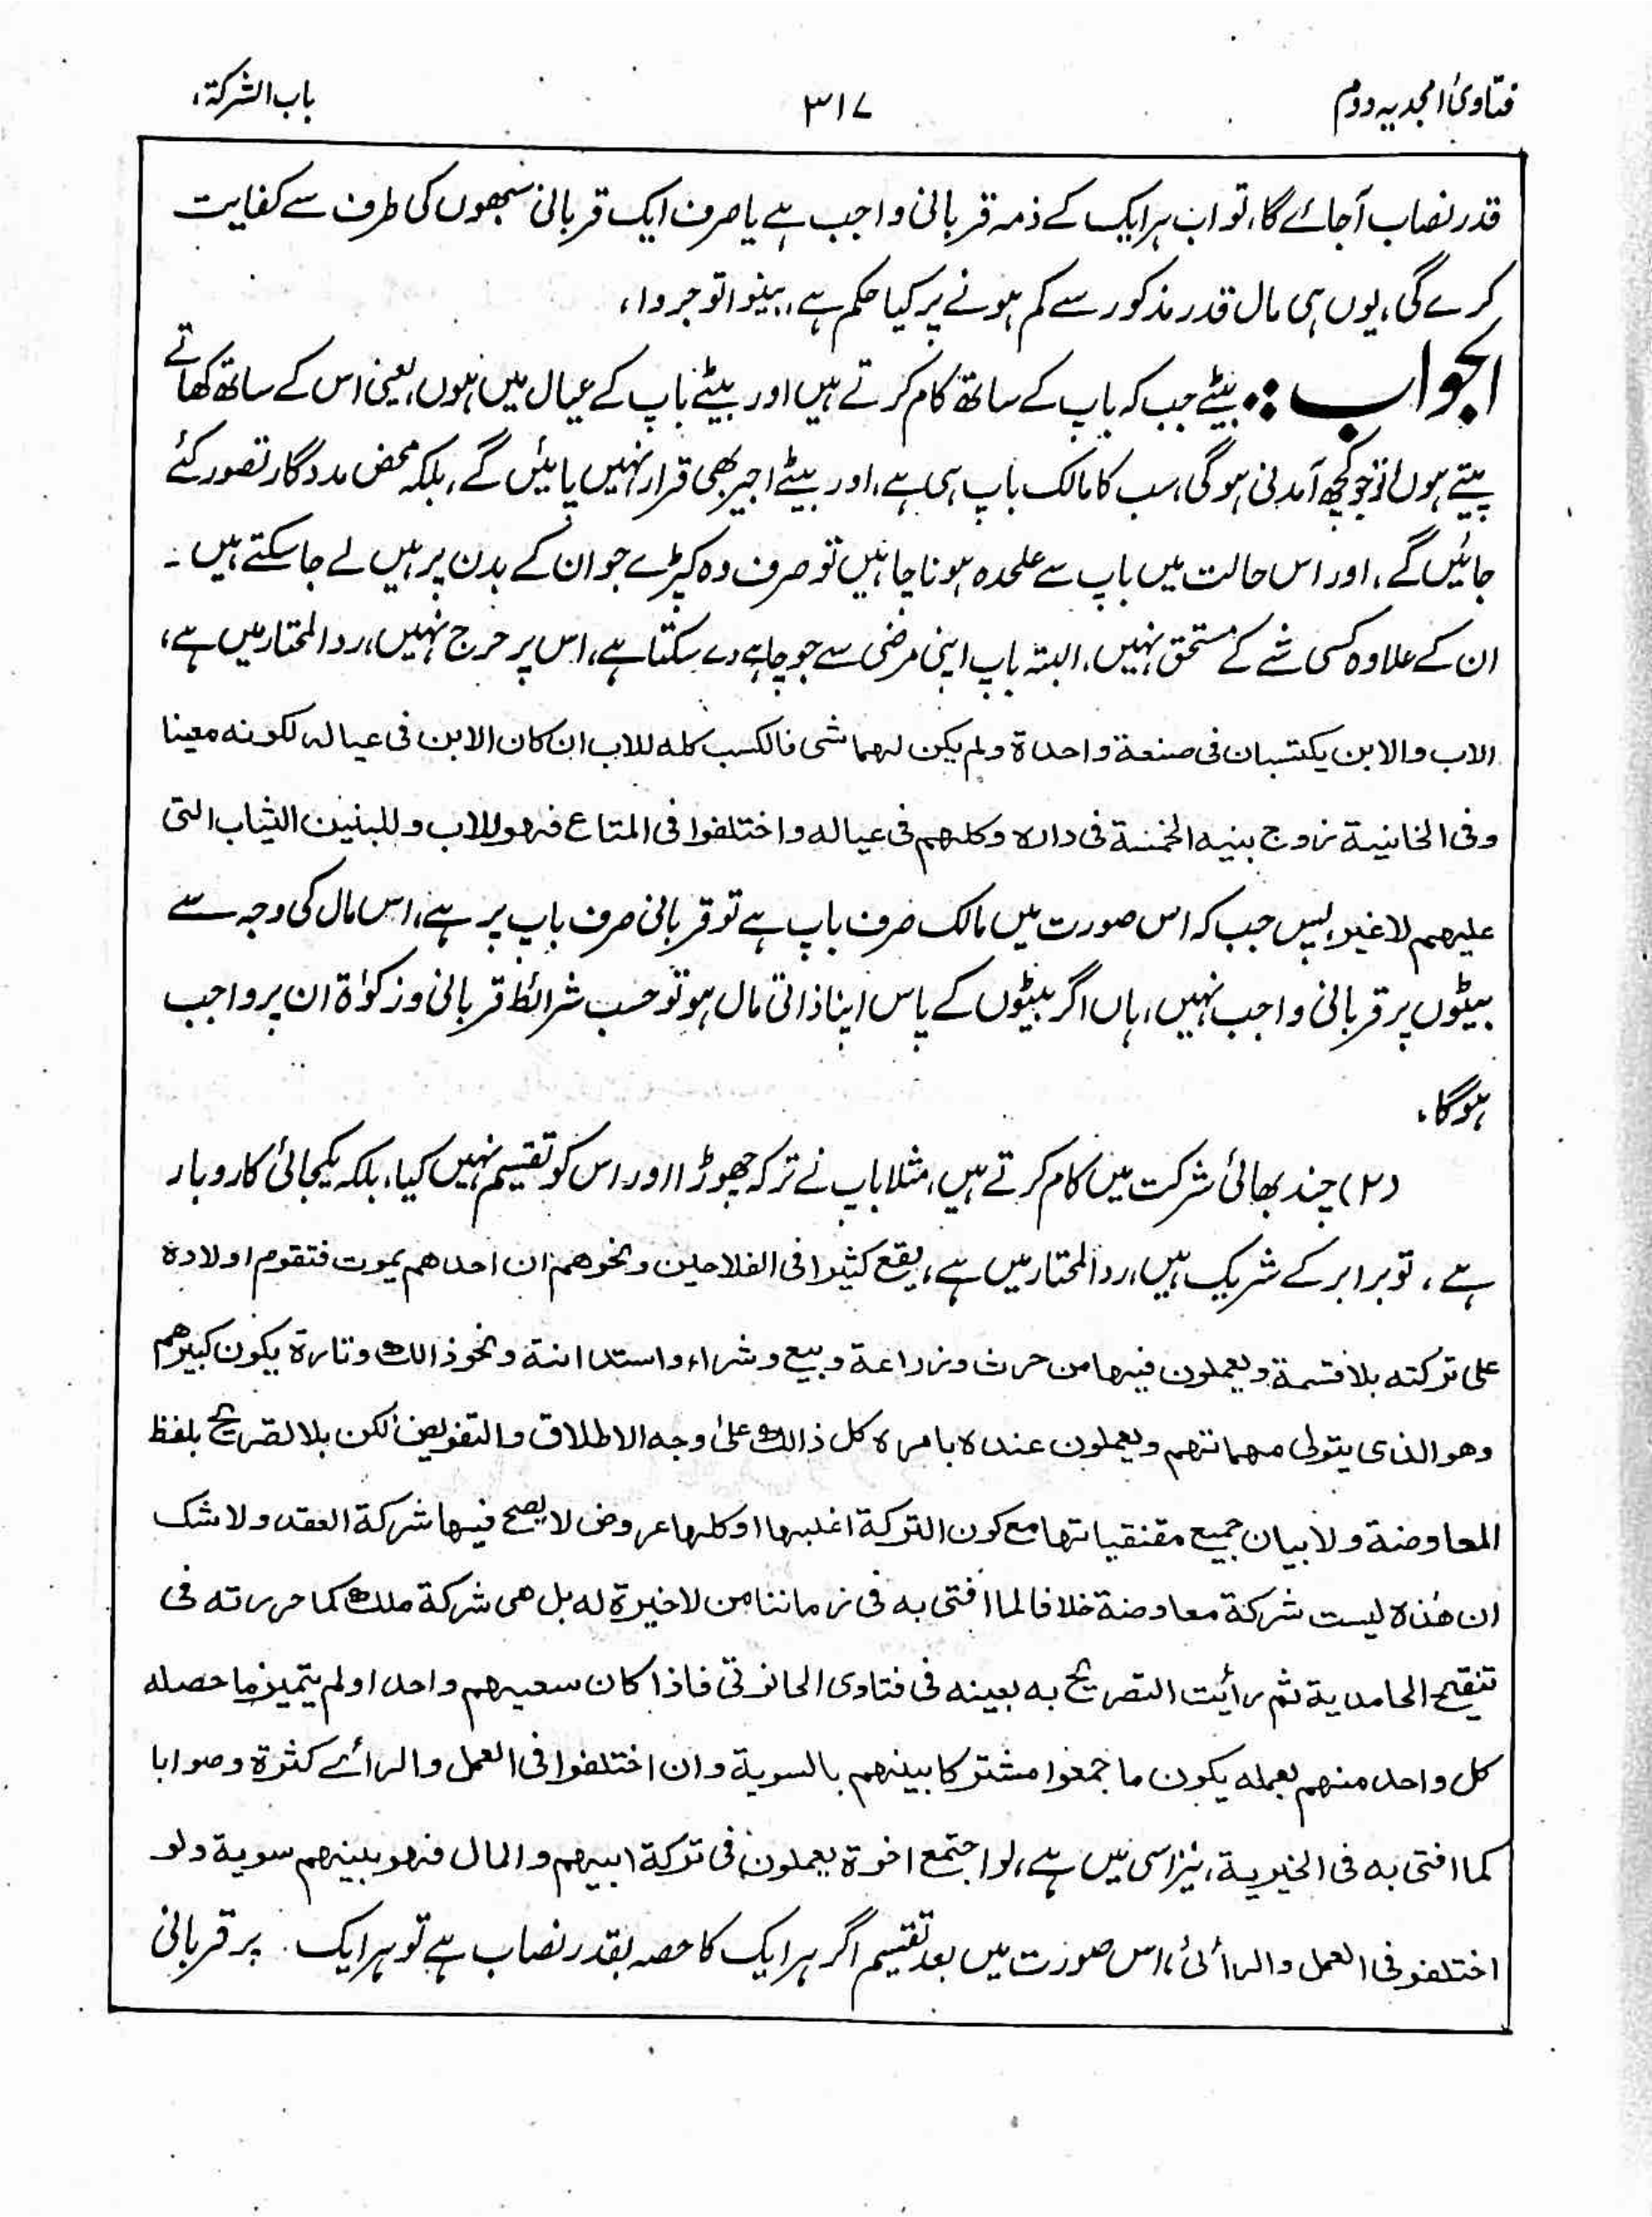 فتاویٰ امجدیہ دوم ۳۱۷ باب الشرکۃ،
قدر نصاب آجائے گا، تو اب ہر ایک کے ذمہ قربانی واجب ہے یا صرف ایک قربانی سبھوں کی طرف سے کفایت
کرے گی، یوں ہی مال قدر مذکور سے کم ہونے پر کیا حکم ہے، بینوا توجروا،
الجواب :: بیٹے جب کہ باپ کے ساتھ کام کرتے ہیں اور بیٹے باپ کے عیال میں ہوں، یعنی اس کے ساتھ کھاتے
پیتے ہوں تو جو کچھ آمدنی ہوگی، سب کا مالک باپ ہی ہے، اور بیٹے اجیر بھی قرار نہیں پائیں گے، بلکہ محض مددگار تصور کئے
جائیں گے، اور اس حالت میں باپ سے علحدہ ہونا چاہیں تو صرف وہ کپڑے جو ان کے بدن پر ہیں لے جا سکتے ہیں ۔
ان کے علاوہ کسی شے کے مستحق نہیں، البتہ باپ اپنی مرضی سے جو چاہے دے سکتا ہے، اس پر حرج نہیں، رد المحتار میں ہے،
الاب والابن یکتسبان فی صنعة واحدة ولم یکن لهما شی فالکسب کله للاب ان کان الابن فی عیاله لکونه معینا
وفی الخانیة زوج بنیه الخمسة فی داره وکلهم فی عیاله واختلفوا فی المتاع فهو للاب وللبنین الثیاب التی
علیهم لا غیر، پس جب کہ اس صورت میں مالک صرف باپ ہے تو قربانی صرف باپ پر ہے، اس مال کی وجہ سے
بیٹوں پر قربانی واجب نہیں، ہاں اگر بیٹوں کے پاس اپنا ذاتی مال ہو تو حسب شرائط قربانی و زکوٰۃ ان پر واجب
ہوگا،
(۲) چند بھائی شرکت میں کام کرتے ہیں، مثلا باپ نے ترکہ چھوڑا اور اس کو تقسیم نہیں کیا، بلکہ یکجائی کاروبار
ہے، تو برابر کے شریک ہیں، رد المحتار میں ہے، یقع کثیرا فی الفلاحین ونحوهم ان احدهم یموت فتقوم اولاده
علی ترکته بلا قسمة ویعملون فیها من حرث وزراعة وبیع وشراء واستدانة ونحو ذالك وتارة یکون کبیرهم
وهو الذی یتولی مهماتهم ویعملون عنده بامره کل ذالك علیٰ وجه الاطلاق والتفویض لکن بلا تصریح بلفظ
المعاوضة ولا بیان جمیع مقتضیاتها مع کون الترکة اغلبها او کلها عروض لا یصح فیها شرکة العقد ولا شک
ان هٰذه لیست شرکة معاوضة خلافا لما افتی به فی زماننا من لا خبرة له بل هی شرکة ملك کما حررته فی
تنقیح الحامدیة ثم رأیت التصریح به بعینه فی فتاوی الحانوتی فاذا کان سعیهم واحدا ولم یتمیز ما حصله
کل واحد منهم بعمله یکون ما جمعوا مشترکا بینهم بالسویة وان اختلفوا فی العمل والرأے کثرة وصوابا
کما افتی به فی الخیریة، نیز اسی میں ہے، لو اجتمع اخوة یعملون فی ترکة ابیهم والمال فهو بینهم سویة ولو
اختلفو فی العمل والرأئ، اس صورت میں بعد تقسیم اگر ہر ایک کا حصہ بقدر نصاب ہے تو ہر ایک پر قربانی